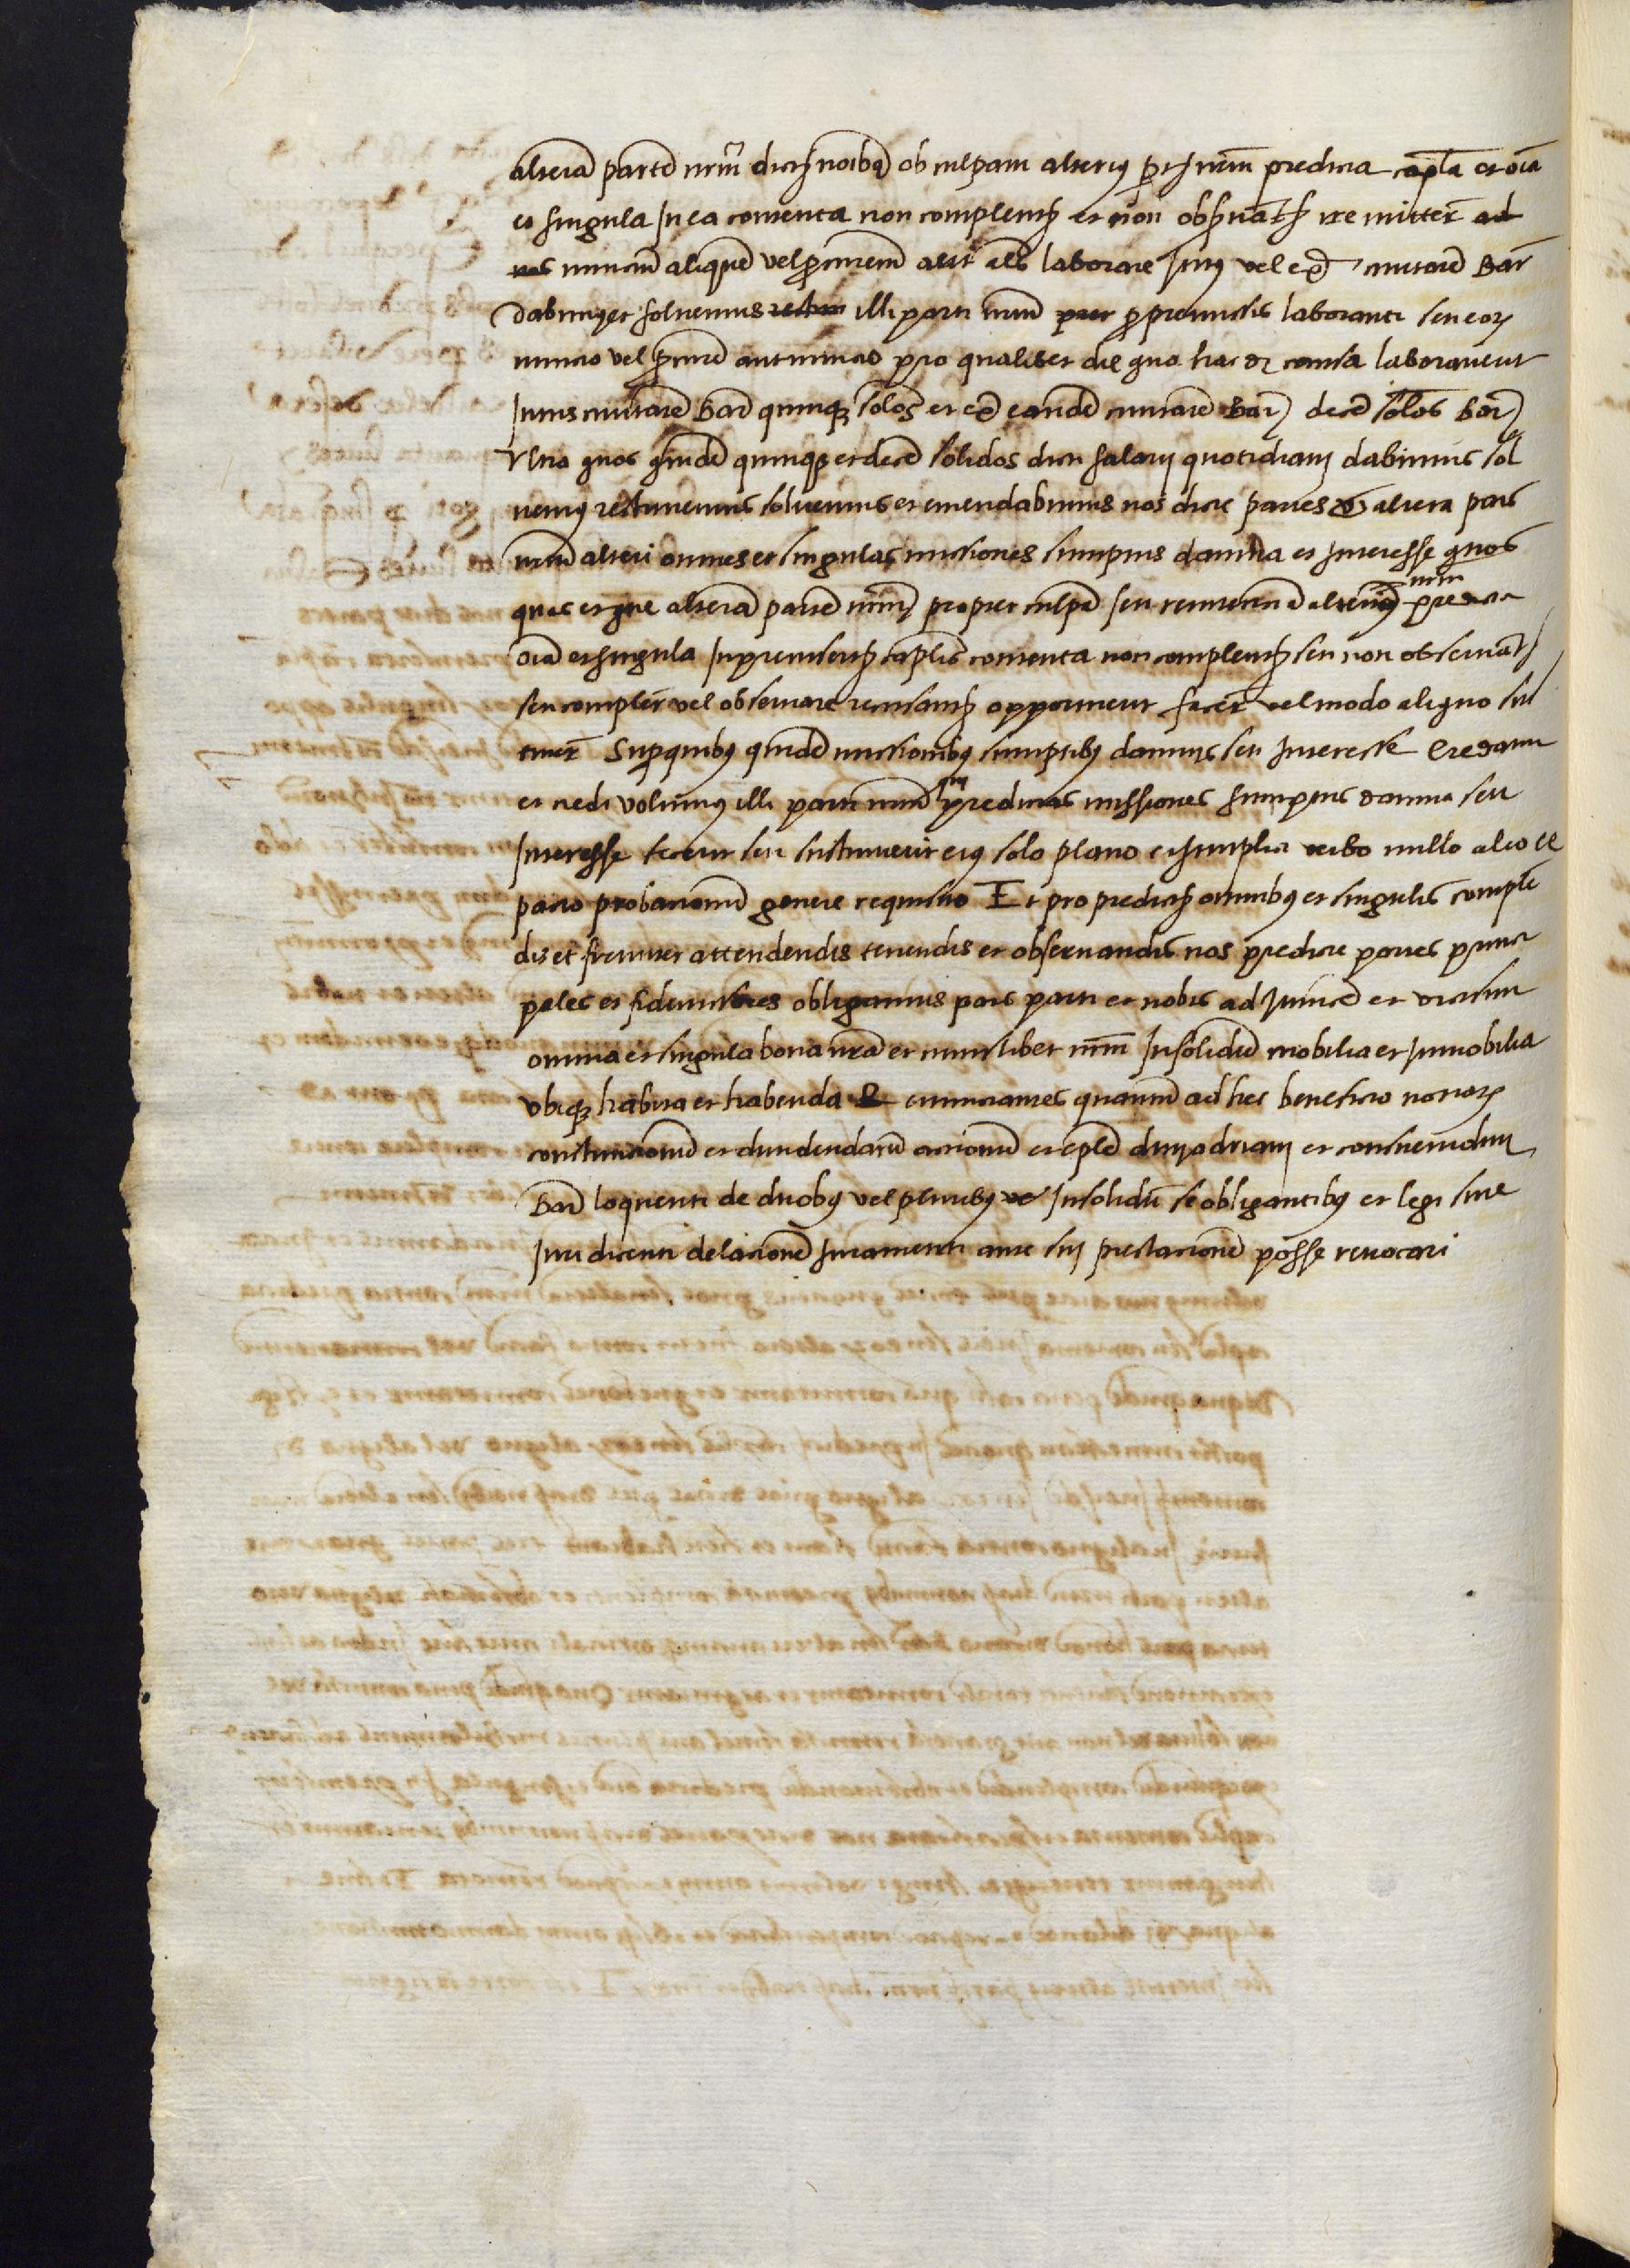 alterã partẽ nrm̃ dictis noibus ob culpam alterius ptis nrm̃ predicta capla et oia
et singula in ea contenta non complentis et non observãtis ire mitter̃ ad
nos nuncium aliquẽ vel procuratorem aut als laborare intus vel ex̃ civitatẽ Bar
Dabimus et solvemus illi parti nrm̃ pro premissis laboranti seu eorum
nuncio vel procuratori aut nuncio pro qualibet die quo hac de causa laboraverit
intus civitatẽ Barñ quinque solos et ex̃ eandẽ civitatẽ Barñ decẽ solos Barñ
Ultra quos quidẽ quinque et decẽ solidos dicti salarii quotidiani dabimus sol
vemus restituemus solvemus et emendabimus nos dicte partes altera pars
nrm̃ alteri omnes et singulas missiones sumptus damna et interesse quos
quas et que alterã partẽ nrm̃ propter culpã seu renitenciã alterius nrm̃ predicta
oia et singula in premissertis caplis contenta non complentis seu non observãtis
seu compler̃ vel observare recusantis opportuerit facer̃ vel modo aliquo sus
tiner̃ Super quibus quidẽ missionibus sumptibus damnis seu interesse credatur
et credi volumus illi parti nrm̃ que predictas missiones sumptus damna seu
interesse fecerit seu sustinuerit eius solo plano et simplici verbo nullo alio ex
pacto probationum genere requisito Et pro predictis omnibus et singulis complẽ
dis et firmiter attendendis tenendis et observandis nos predicte partes princi
pales et fideiussores obligamus pars parti et nobis ad invicẽ et vicissim
omnia et singula bona nrã et cuiuslibet nrm̃ insolidum mobilia et inmobilia
ubique habita et habenda Renunciantes quantum ad hec beneficio novarum
constitucionum et dividendarum accionum et eple divi adriani et consuetudini
Barñ loquenti de duobus vel pluribus insolidum se obligantibus et legi sive
iuri dicenti delacionẽ iuramenti ante sui prestacionẽ posse revocari